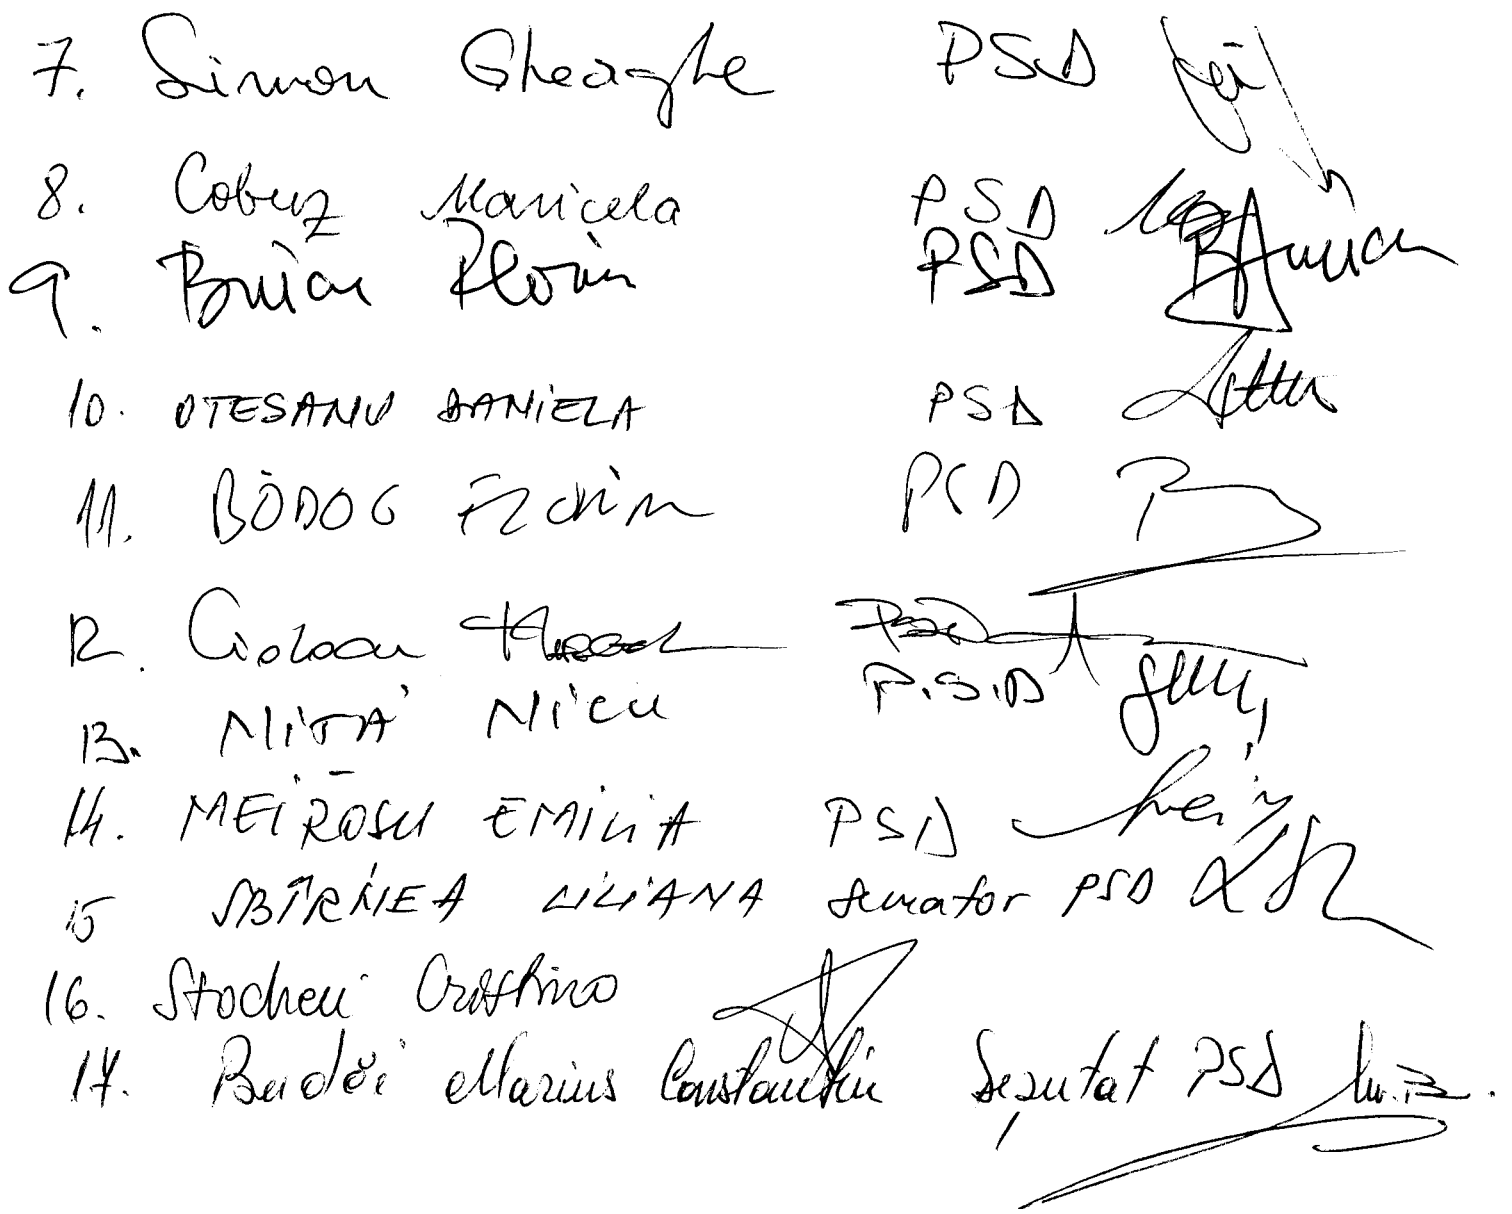 7. Simon Gheorghe PSD
8. Cobuz Maricela PSD
9. Buicu Florin PSD
10. OTESANU DANIELA PSD
11. BODOG Florin PSD
12. Ciolacu PSD
13. NIȚĂ Nicu P.S.D
14. MEIROSU EMILIA PSD
15 SBÎRNEA LILIANA senator PSD
16. Stocheci Cristina
17. Budăi Marius Constantin Deputat PSD